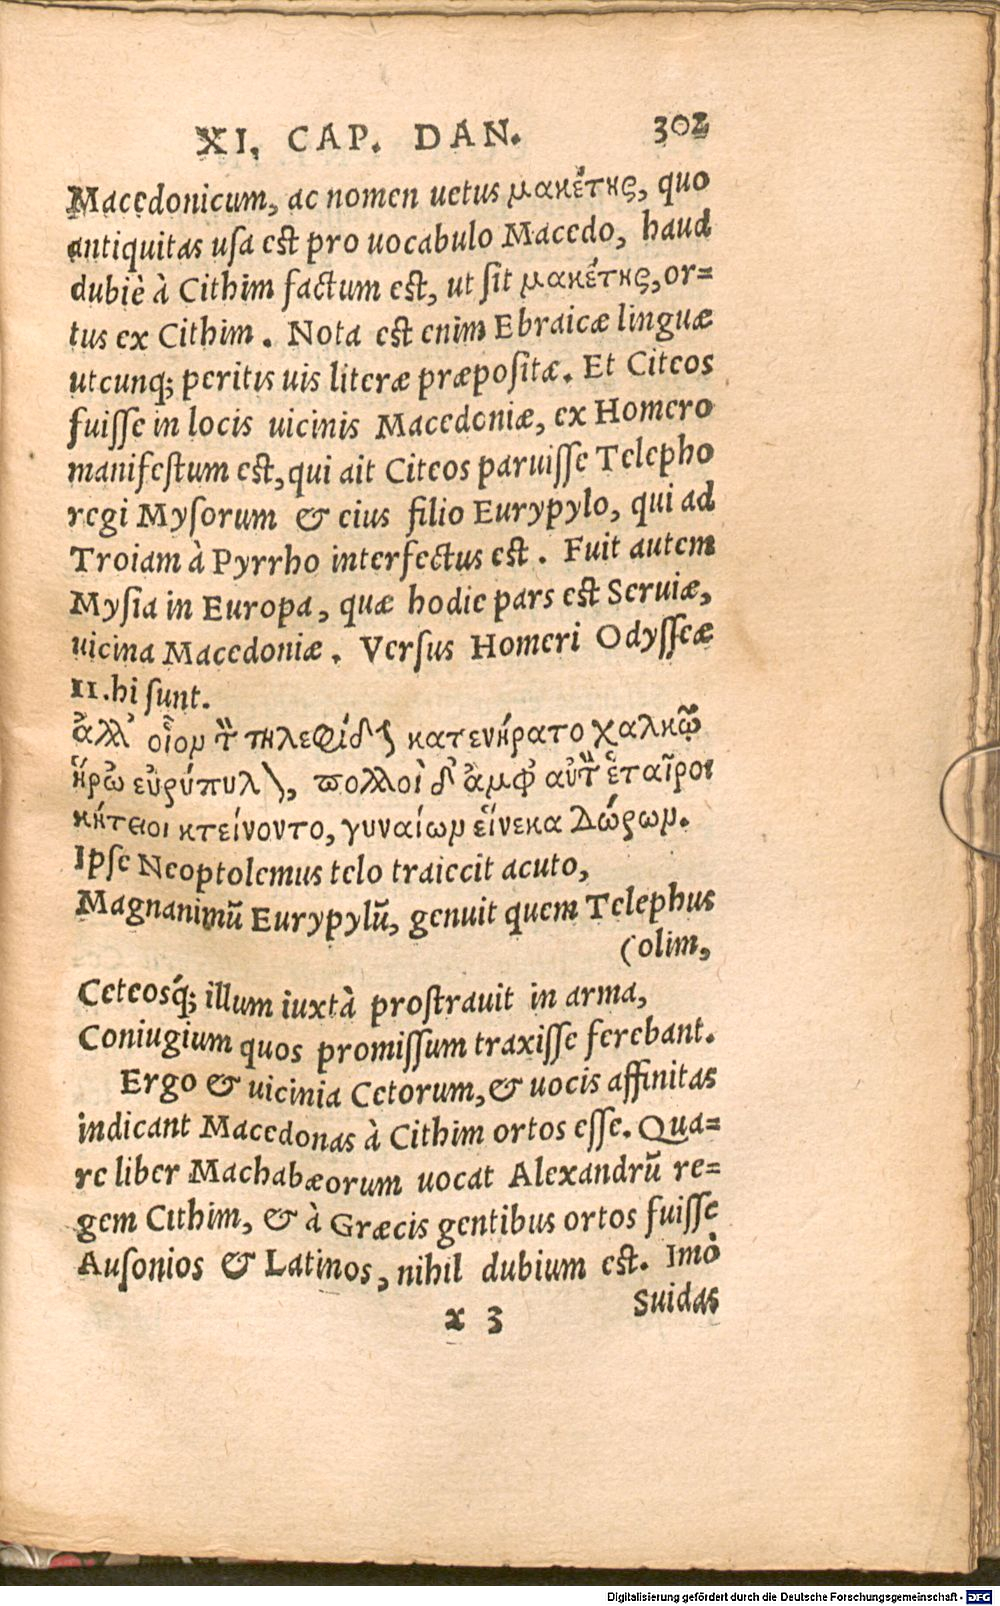 XI. CAP. DAN. 302
Macedonicum, ac nomen uetus μακέτης, quo
antiquitas usa est pro uocabulo Macedo, haud
dubiè à Cithim factum est, ut sit μακέτης, or=
tus ex Cithim. Nota est enim Ebraicæ linguæ
utcunq; peritis uis literæ præpositæ. Et Citeos
fuisse in locis uicinis Macedoniæ, ex Homero
manifestum est, qui ait Citeos paruisse Telepho
regi Mysorum & eius filio Eurypylo, qui ad
Troiam à Pyrrho interfectus est. Fuit autem
Mysia in Europa, quæ hodie pars est Seruiæ,
uicina Macedoniæ. Versus Homeri Odysseæ
11. hi sunt.
ἀλλ' οἷον τὸν τηλεφίδην κατενήρατο χαλκῷ
ἥρω εὐρύπυλον, πολλοὶ δ' ἀμφ' αὐτὸν ἑταῖροι
κήτειοι κτείνοντο, γυναίων εἵνεκα δώρων.
Ipse Neoptolemus telo traiecit acuto,
Magnanimũ Eurypylũ, genuit quem Telephus
(olim,
Ceteosq́; illum iuxtà prostrauit in arma,
Coniugium quos promissum traxisse ferebant.
Ergo & uicinia Cetorum, & uocis affinitas
indicant Macedonas à Cithim ortos esse. Qua=
re liber Machabæorum uocat Alexandrũ re=
gem Cithim, & à Græcis gentibus ortos fuisse
Ausonios & Latinos, nihil dubium est. Imò
x 3 Suidas
Digitalisierung gefördert durch die Deutsche Forschungsgemeinschaft - DFG